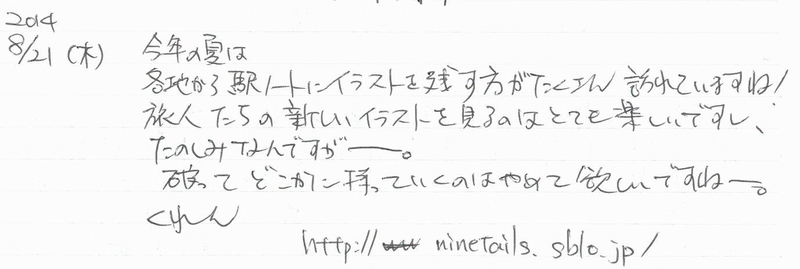 2014
8/21(木) 今年の夏は
各地から駅ノートにイラストを残す方がたくさん訪れていますね!
旅人たちの新しいイラストを見るのはとても楽しいですし、
たのしみなんですがー。
破ってどこかに持っていくのはやめて欲しいですねー。
くれん
http:// ninetails.sblo.jp/